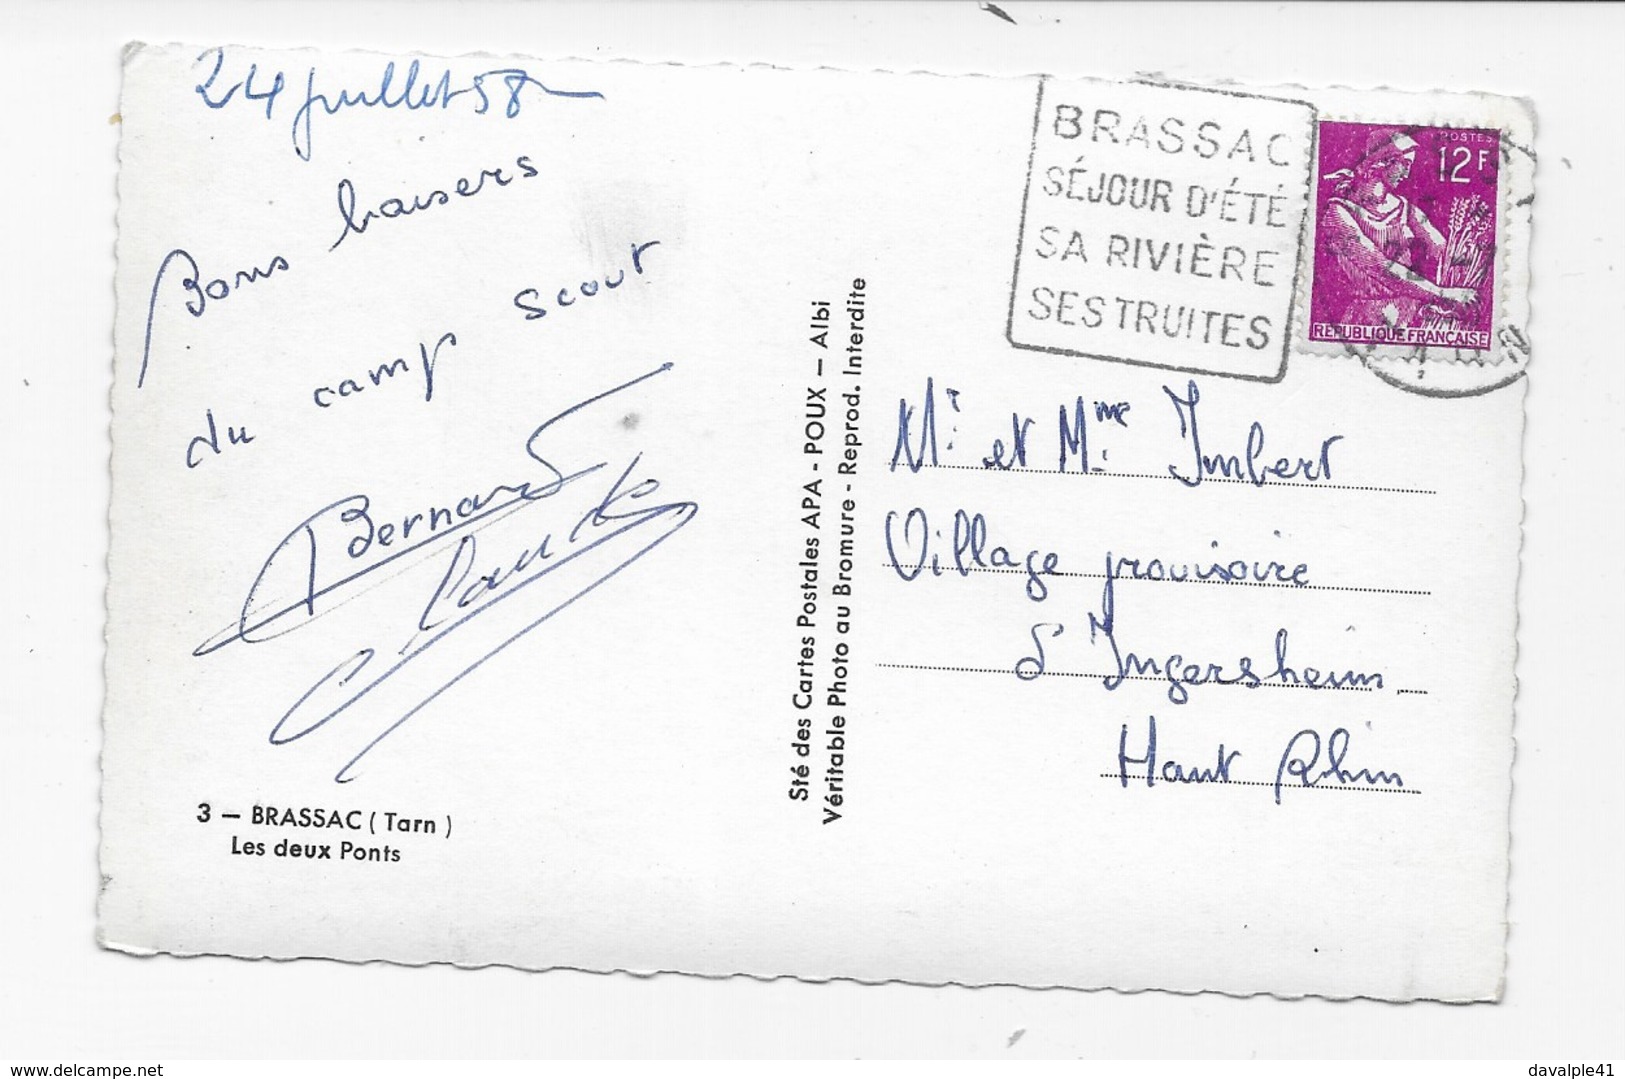 24 juillet 58
Bons baisers
du camp scout
Bernard
3 — BRASSAC ( Tarn )
Les deux Ponts
Sté des Cartes Postales APA - POUX — Albi
Véritable Photo au Bromure - Reprod. Interdite
BRASSAC
SÉJOUR D'ÉTÉ
SA RIVIÈRE
SES TRUITES
POSTES
12F
RÉPUBLIQUE FRANÇAISE
Mr et Mme Imbert
Village provisoire
d'Ingersheim
Haut Rhin
delcampe.net
davalple41